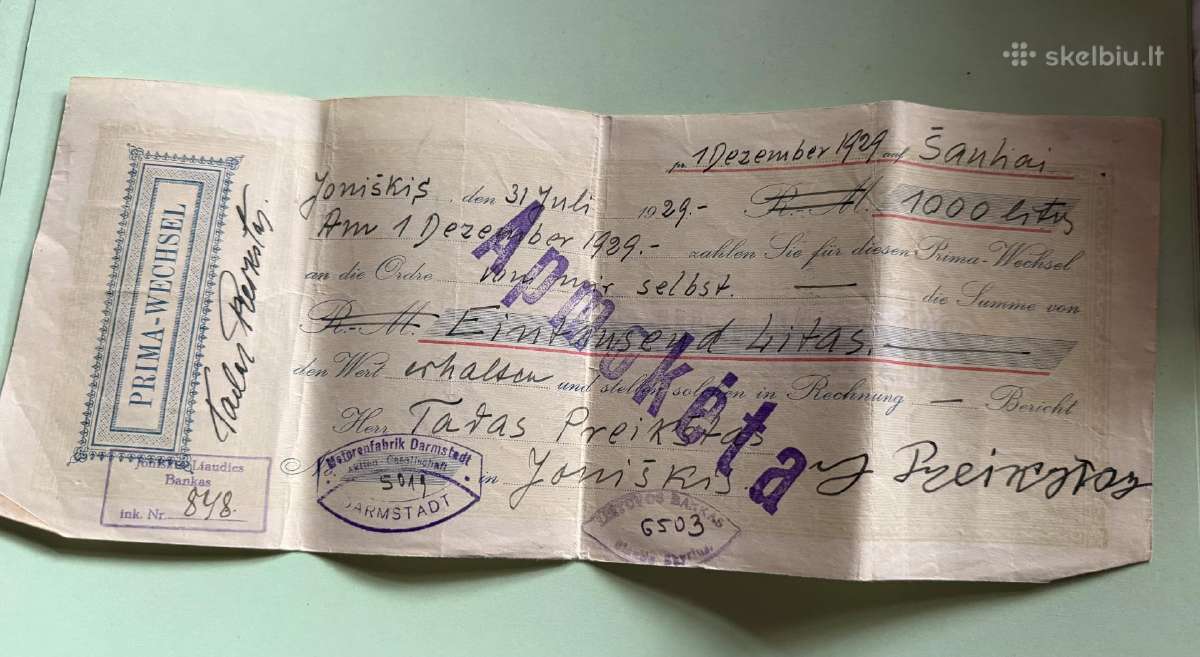 skelbiu.lt
PRIMA-WECHSEL
Tadas Preikštas.
1 Dezember 1929 auf Šauliai
Joniškis, den 31 Juli 1929.- R.-M. 1000 litų
Am 1 Dezember 1929.- zahlen Sie für diesen Prima-Wechsel
an die Ordre von mir selbst. — die Summe von
R.-M. Eintausend Litas. —
den Wert erhalten und stellen solchen in Rechnung — Bericht
Herr Tadas Preikštas
in Joniškis.
Preikštas
Apmokėta
Motorenfabrik Darmstadt
Aktien-Gesellschaft
5019
DARMSTADT
Liaudies
Bankas
ink. Nr. 848.
LIETUVOS BANKAS
6503
Skyrius